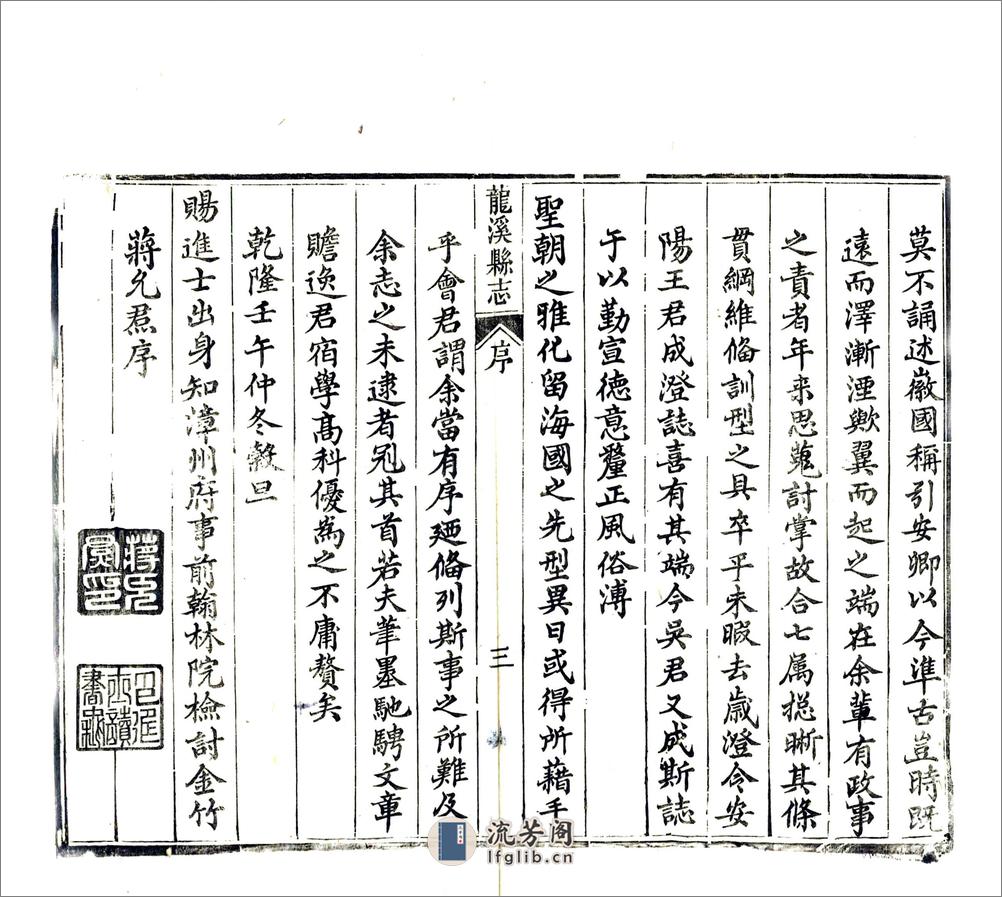 莫不誦述徽國稱引安卿以今準古豈時既
遠而澤漸湮歟翼而起之端在余輩有政事
之責者年来思蒐討掌故合七属揔晰其條
貫綱維俻訓型之具卒卒未暇去歳澄令安
陽王君成澄誌喜有其端今吳君又成斯誌
于以勤宣徳意釐正風俗溥
聖朝之雅化留海國之先型異日或得所藉手
龍溪縣志
序
三
乎會君謂余當有序廼俻列斯事之所難及
余志之未逮者冠其首若夫筆墨馳騁文章
贍逸君宿學高科優為之不庸贅矣
乾隆壬午仲冬穀旦
賜進士出身知漳州府事前翰林院檢討金竹
蔣允焄序
蔣允焄印
讀書
流芳阁
lfglib.cn